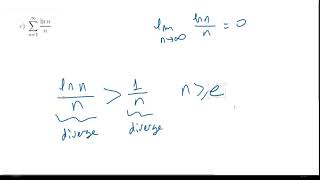 c) ∑_{n=1}^{∞} ln n / n
lim_{n→∞} ln n / n = 0
ln n / n > 1 / n n ≥ e
diverge diverge